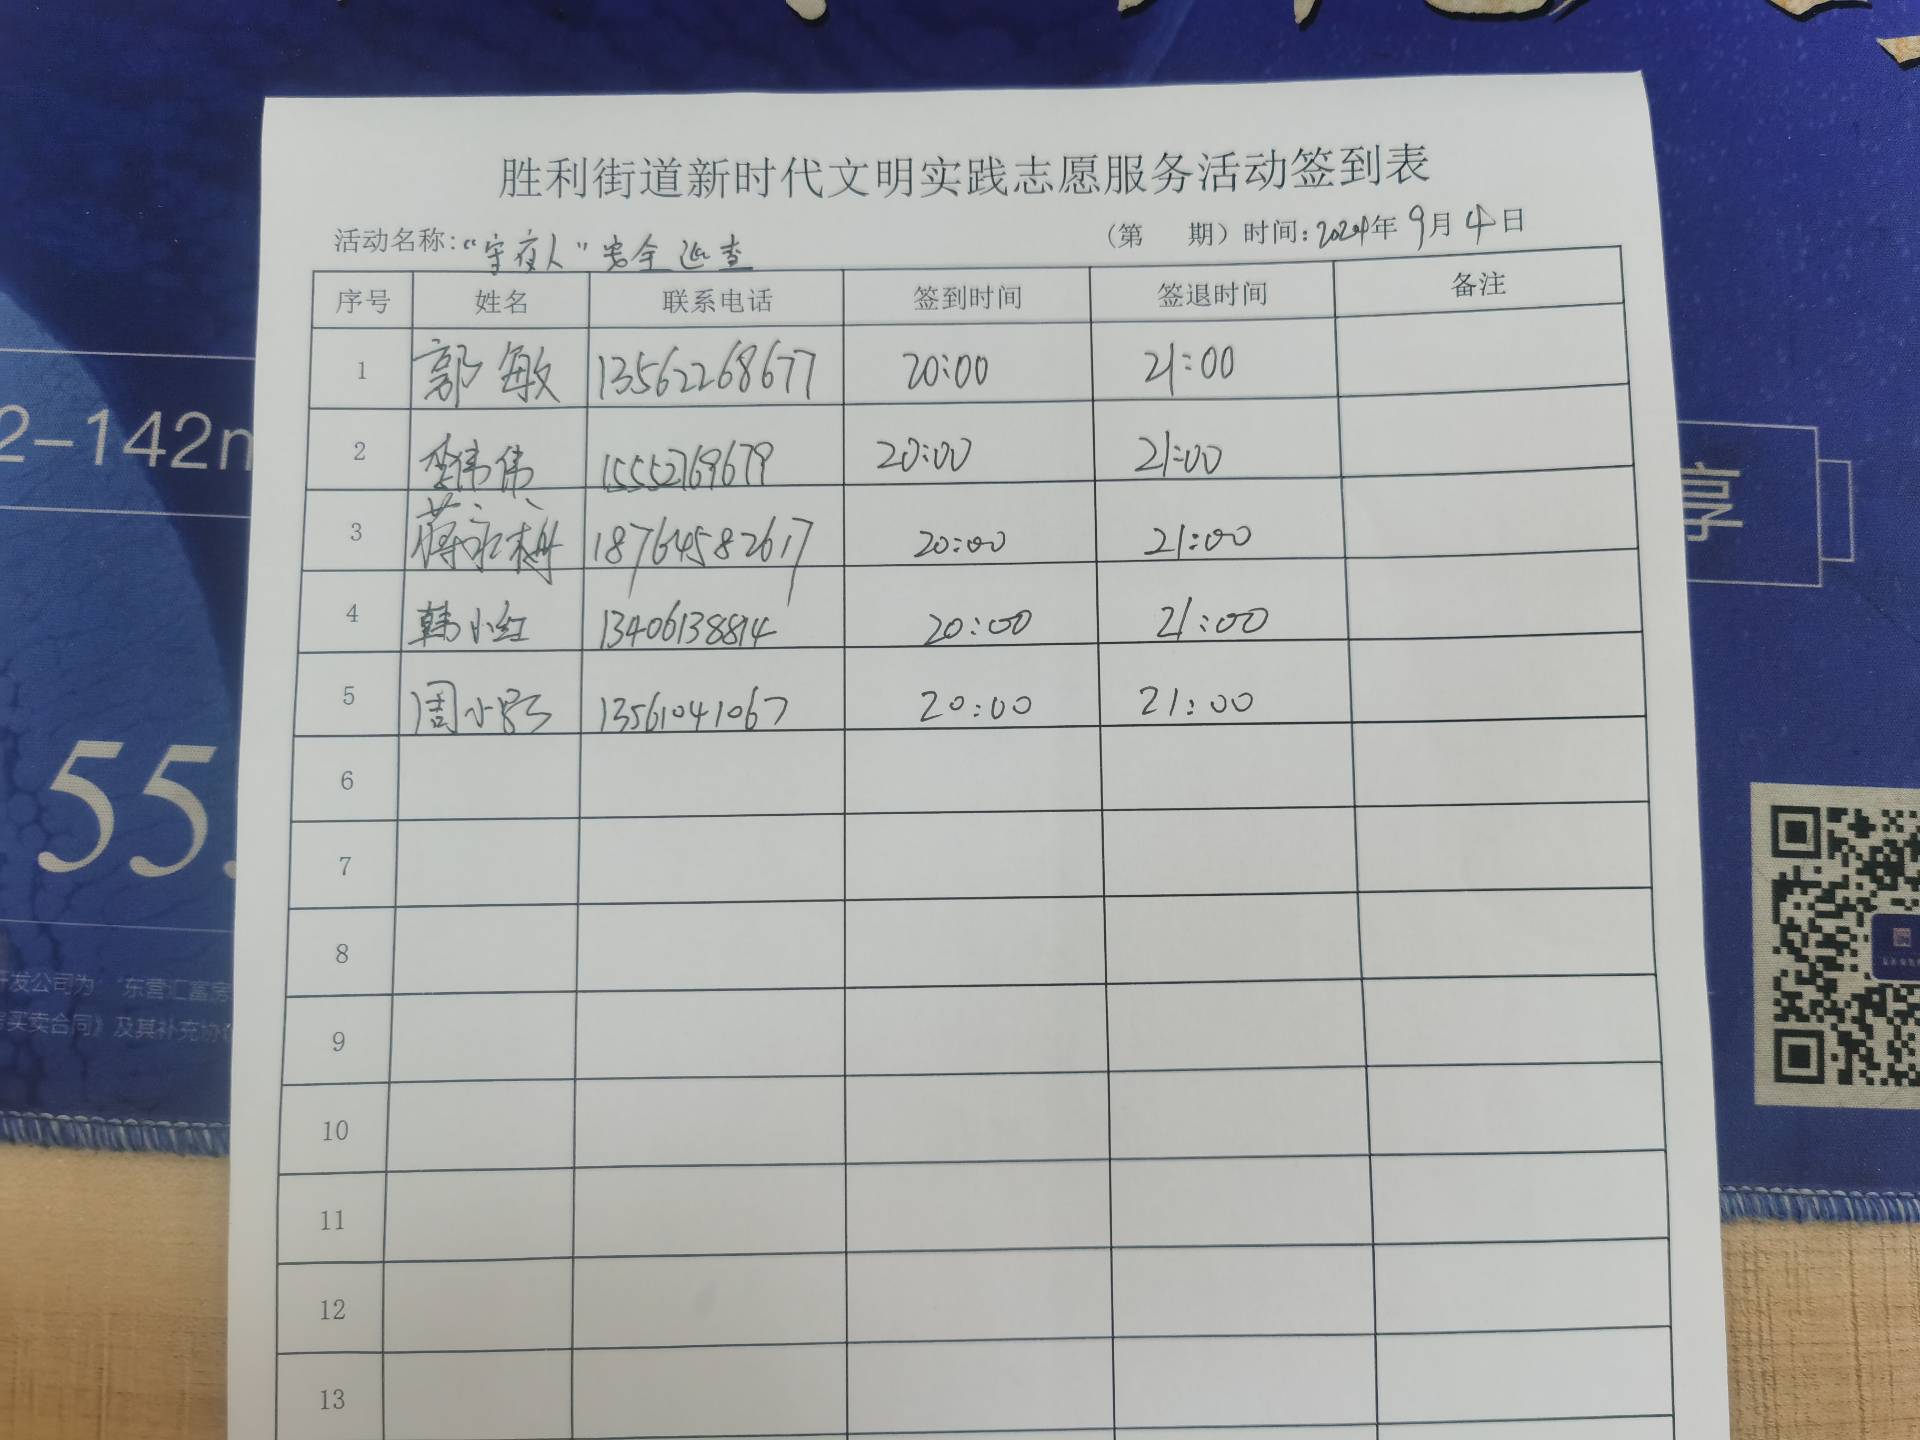 胜利街道新时代文明实践志愿服务活动签到表
活动名称:“守夜人”安全巡查 (第 期) 时间:2024年9月4日
序号 姓名 联系电话 签到时间 签退时间 备注
1 郭敏 13562268677 20:00 21:00
2 李伟伟 15552769679 20:00 21:00
3 蒋永梅 18764582617 20:00 21:00
4 韩小红 13406138814 20:00 21:00
5 周小 13561041067 20:00 21:00
6
7
8
9
10
11
12
13
2-142m
享
55.
开发公司为:“东营汇富房
房买卖合同》及其补充协